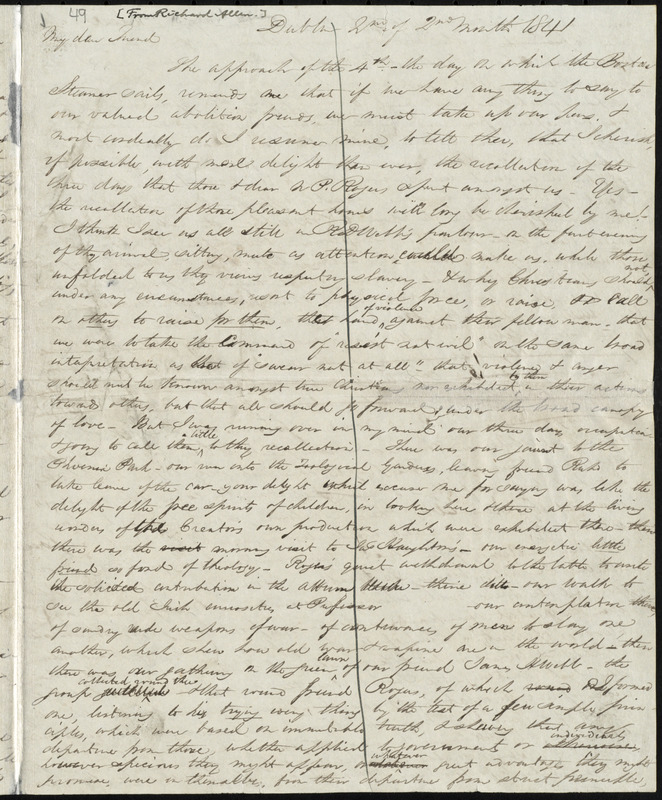 49 [From Richard Allen.]
Dublin 2nd of 2nd Month 1841
My dear Friend
The approach of the 4th - the day on which the Boston
Steamer sails, reminds me that if we have any thing to say to
our valued abolition friends, we must take up our pens, &
most cordially do I resume mine, to tell thee, that I cherish,
if possible, with more delight than ever, the recollection of the
three days that thou & dear N P. Rogers spent amongst us - Yes -
the recollection of those pleasant hours will long be cherished by me! -
I think I see us all still in R D Webb's parlour - on the first evening
of thy arrival, sitting, mute as attention could make us, while thou
unfolded to us thy views respecting slavery - & why Christians should not,
under any circumstances, resort to physical force, or raise or call
on others to raise for them, the hand of violence against their fellow man - that
we were to take the command of "resist not evil" on the same broad
interpretation as that of "swear not at all" - that violence & anger
should not be known amongst true Christians nor exhibited by them in their actions
towards others, but that all should go forward under the broad canopy
of love - But I was running over in my mind our three day occupation
& going to call them a little to thy recollection - There was our jaunt to the
Phoenix Park - our run into the Zoological Gardens, leaving friend
to
take leave of the car - your delight
excuse me for saying was like the
delight of the free spirits of children, in looking here & there at the living
wonders of the Creators own production which were exhibited there - then
there was the visit morning visit to Jas Haughton's - our energetic little
friend so fond of theology - Rogers quiet withdrawal to the table to write
the solicited contribution in the album
- thine ditto - our walk to
see the old Irish curiosities at Professor
our contemplation there
of sundry rude weapons of war - of contrivances of men to slay one
another, which shew how old war & rapine are in the world - then
there was our gathering on the green lawn of our friend James H Webb - the
group collected around thee & that round friend Rogers, of which I formed
one, listening to his trying every thing by the test of a few simple prin-
ciples, which were based on immutable truth, & shewing that any
departure from those, whether applied to governments or individuals
however specious they might appear, or whatever great advantage they might
promise, were in themselves, from their departure from strict principle,